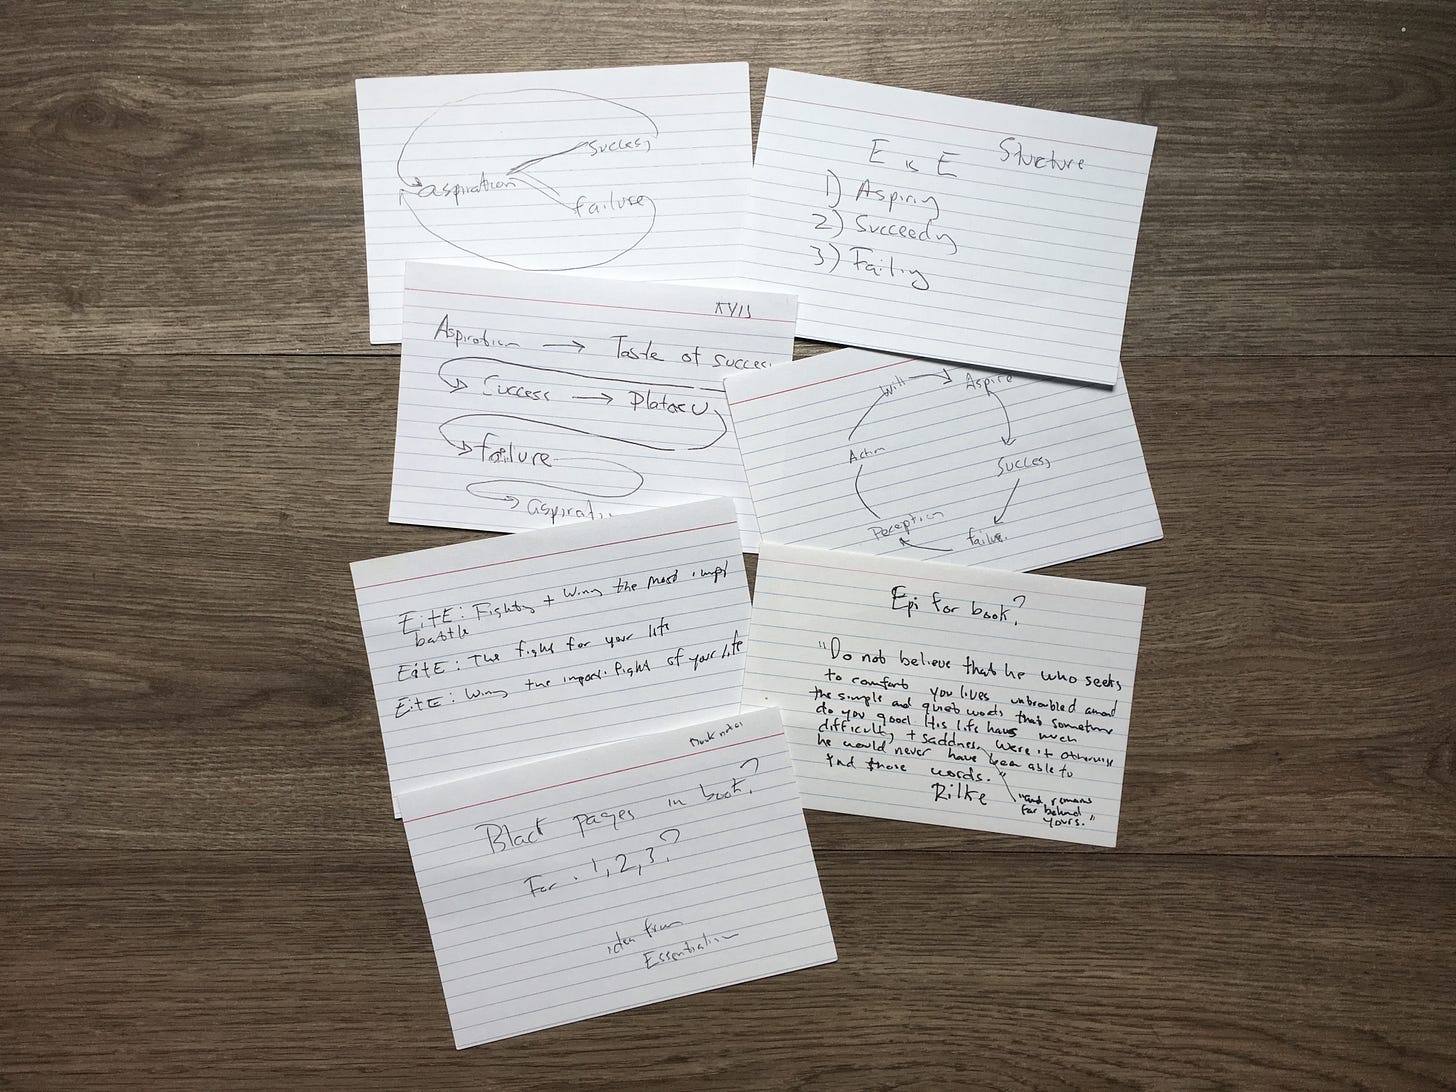 Success
aspiration
failure
E is E Structure
1) Aspiring
2) Succeedng
3) Failing
Aspiration → Taste of success
Success → Plataeu
failure
aspirati
Will → Aspire
Action
Success
Perception
failure
EitE: Fighting + Winng the most impt
battle
EitE: The fight for your life
EitE: Winng the import. fight of your life
Epi for book?
"Do not believe that he who seeks
to comfort you lives untroubled among
the simple and quiet words that sometimes
do you good His life has much
difficulty + saddness, were it otherwise
he would never have been able to
find those words."
Rilke
"and remains
far behind
yours."
Book notes
Black pages in book?
For 1, 2, 3?
idea from
Essentialism